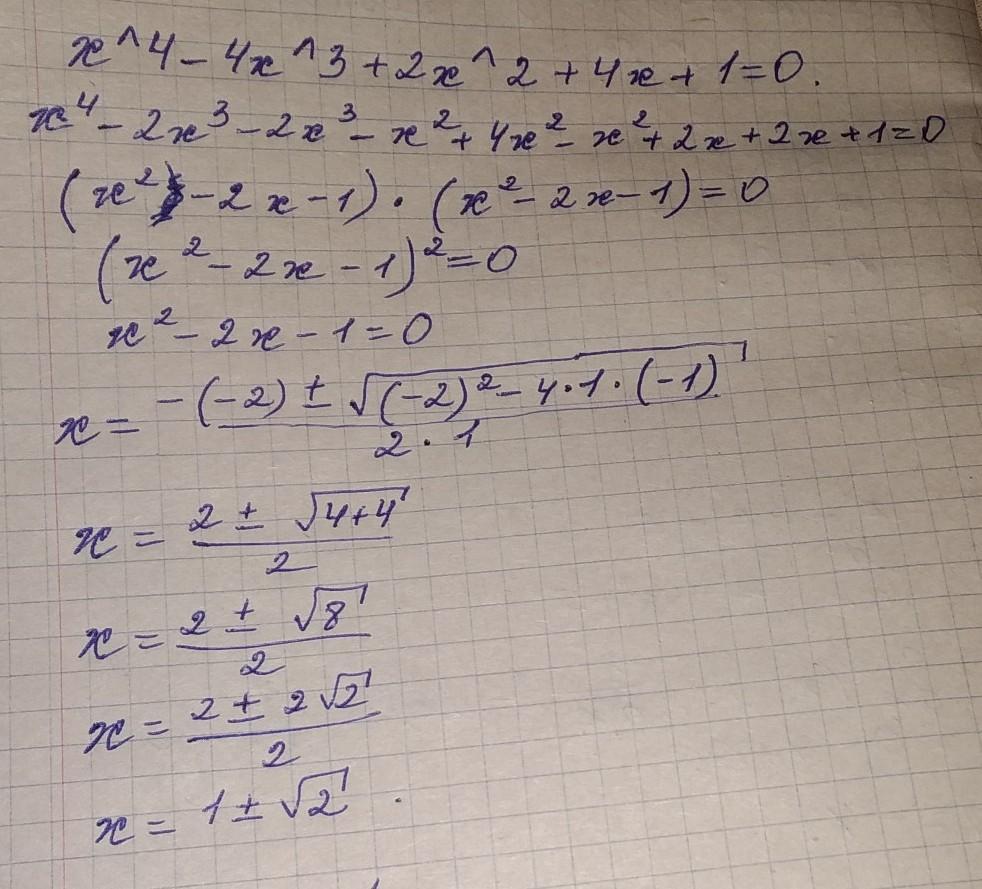 x^4 - 4x^3 + 2x^2 + 4x + 1 = 0.
x⁴ - 2x³ - 2x³ - x² + 4x² - x² + 2x + 2x + 1 = 0
(x² - 2x - 1) · (x² - 2x - 1) = 0
(x² - 2x - 1)² = 0
x² - 2x - 1 = 0
x = (-(-2) ± √((-2)² - 4·1·(-1))) / (2·1)
x = (2 ± √(4+4)) / 2
x = (2 ± √8) / 2
x = (2 ± 2√2) / 2
x = 1 ± √2.